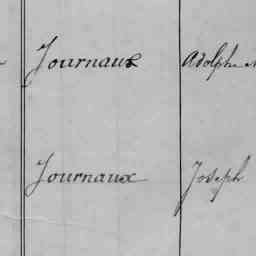 Journaux Adolphe
Journaux Joseph